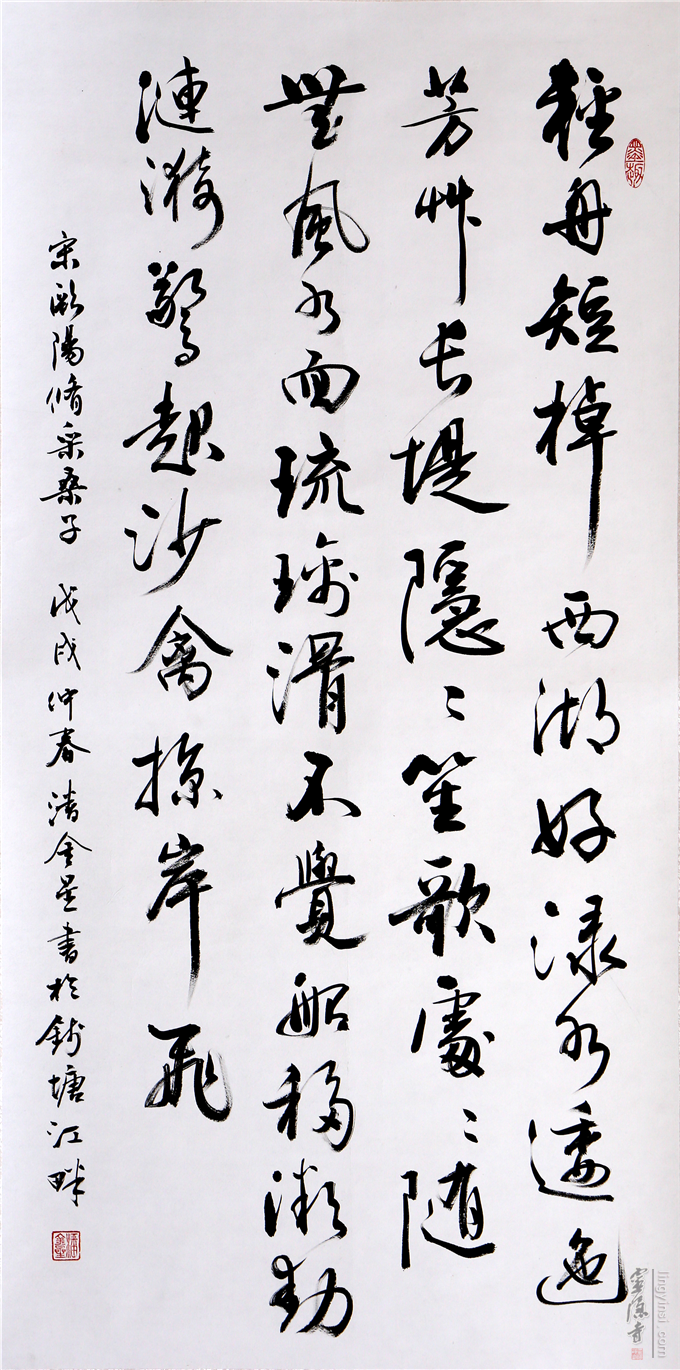 輕舟短棹西湖好渌水逶迤
芳艸長堤隱〻笙歌處〻随
無風水面琉璃滑不覺船移微動
漣漪驚起沙禽掠岸飛
宋歐陽脩采桑子 戊戌仲春清金星書於錢塘江畔
靈隱寺
lingyinsi.com